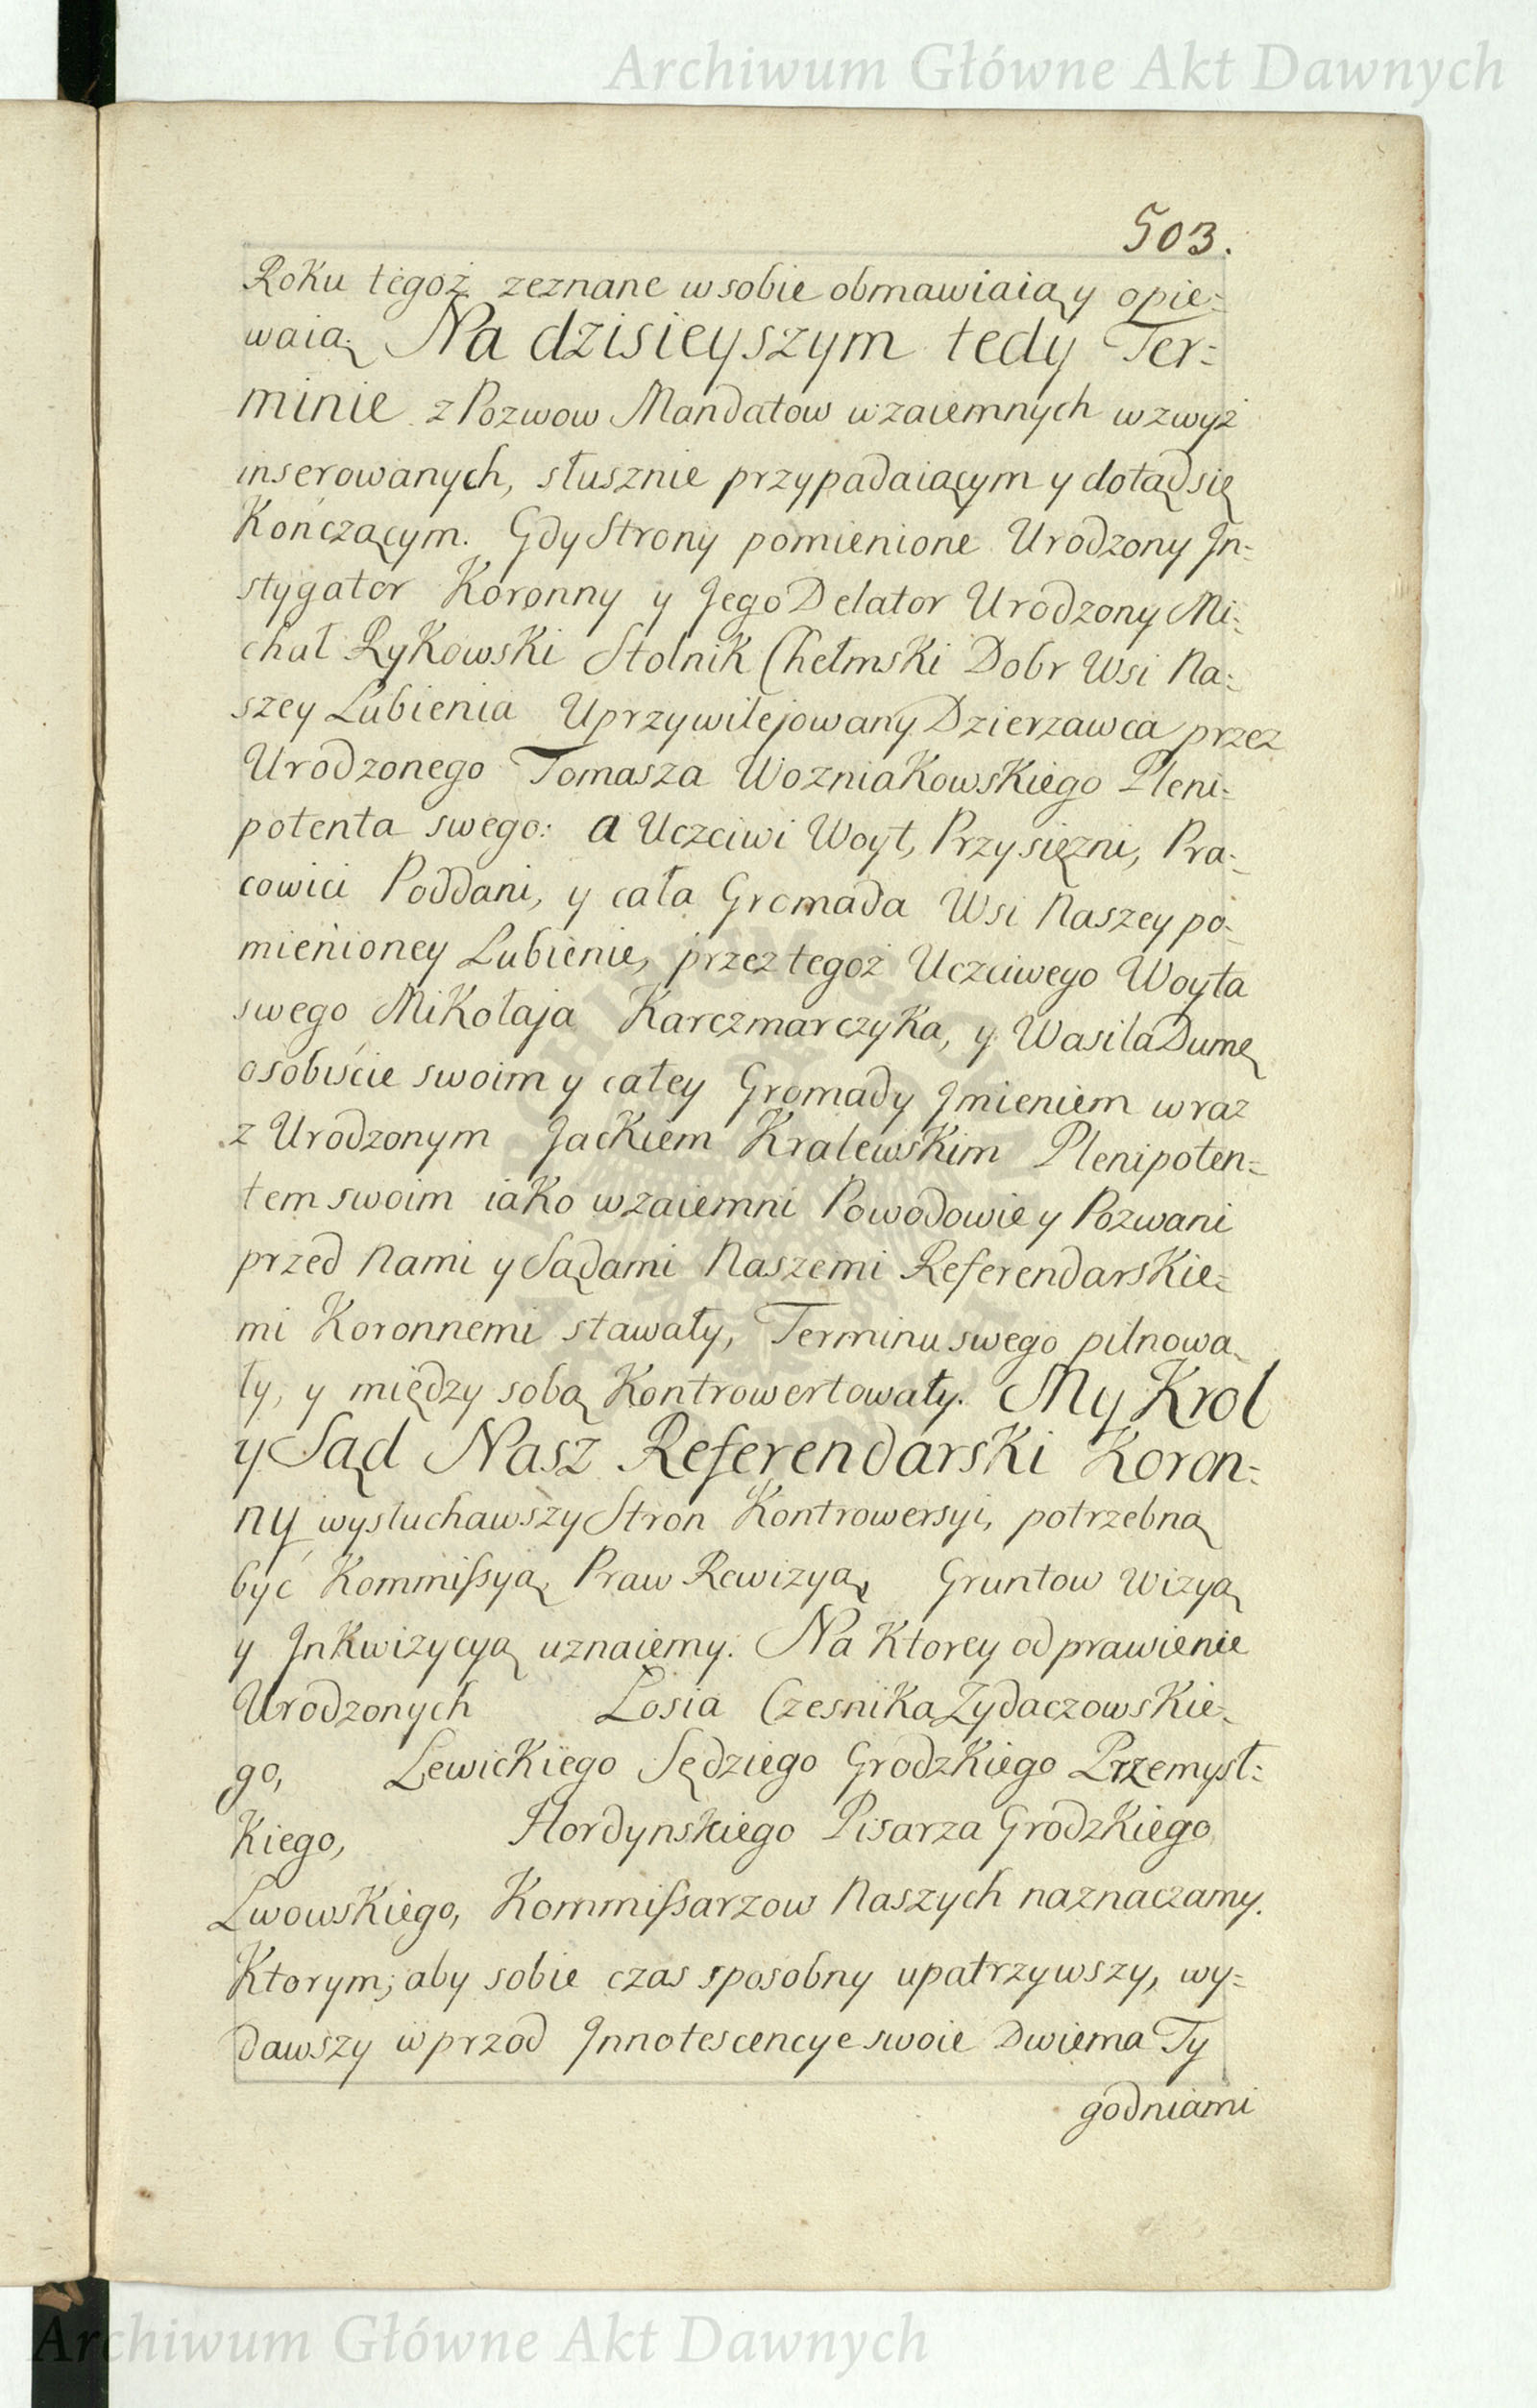 Archiwum Główne Akt Dawnych
503.
Roku tegoż zeznane w sobie obmawiaią y opie=
waią. Na dzisieyszym tedy Ter=
minie z Pozwow Mandatow wzaiemnych wzwyż
inserowanych, słusznie przypadaiącym y dotąd się
Kończącym. Gdy Strony pomienione Urodzony In=
stygator Koronny y Jego Delator Urodzony Mi=
chał Rykowski Stolnik Chełmski Dobr Wsi Na=
szey Lubienia Uprzywilejowany Dzierzawca przez
Urodzonego Tomasza Wozniakowskiego Pleni=
potenta swego: a Uczciwi Woyt, Przysięzni, Pra=
cowici Poddani, y cała Gromada Wsi Naszey po=
mienioney Lubienie, przez tegoż Uczciwego Woyta
swego Mikołaja Karczmarczyka, y Wasila Dumę
osobiście swoim y całey Gromady Imieniem wraz
z Urodzonym Jackiem Kralewskim Plenipoten=
tem swoim iako wzaiemni Powodowie y Pozwani
przed Nami y Sądami Naszemi Referendarskie=
mi Koronnemi stawały, Terminu swego pilnowa=
ły, y między sobą Kontrowertowały. My Krol
y Sąd Nasz Referendarski Koron=
ny wysłuchawszy Stron Kontrowersyi, potrzebną
być Kommissyą, Praw Rewizyą, Gruntow Wizyą
y Inkwizycyą uznaiemy. Na Ktorey odprawienie
Urodzonych Łosia Czesnika Zydaczowskie=
go, Lewickiego Sędziego Grodzkiego Przemysł=
kiego, Hordynskiego Pisarza Grodzkiego
Lwowskiego, Kommissarzow Naszych naznaczamy.
Ktorym; aby sobie czas sposobny upatrzywszy, wy=
dawszy wprzod Innotescencye swoie Dwiema Ty
godniami
Archiwum Główne Akt Dawnych